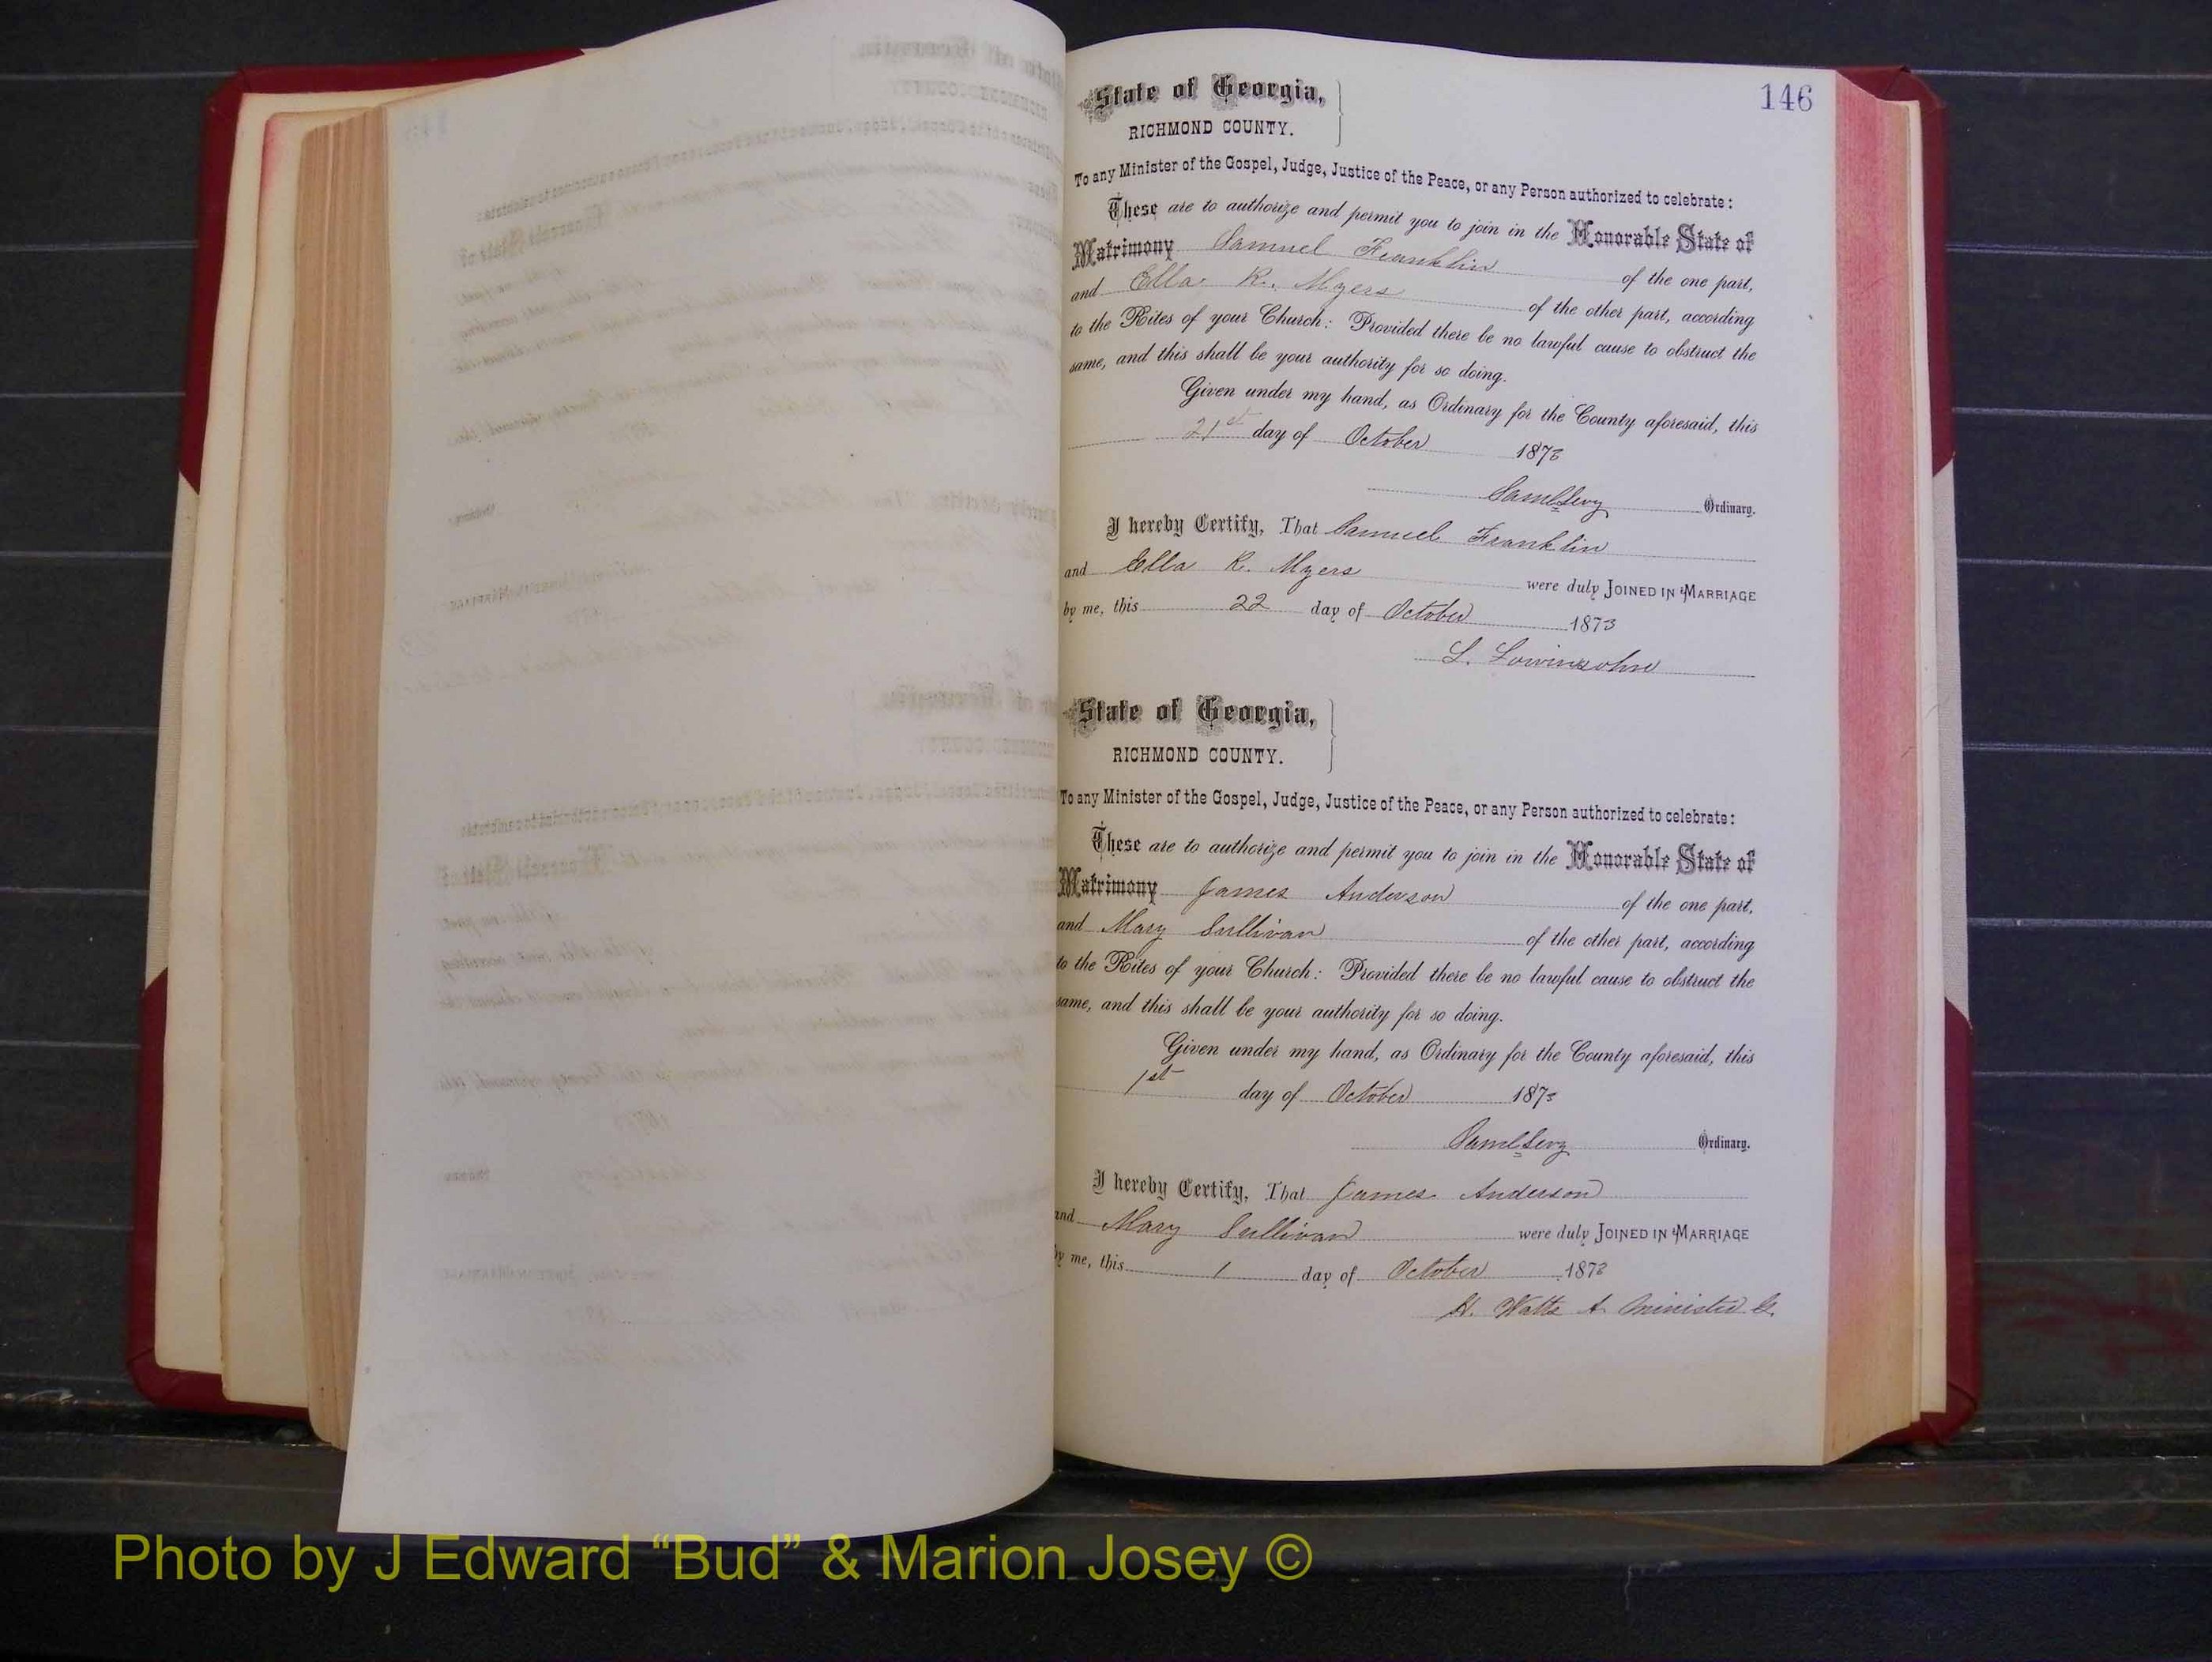 146
State of Georgia,
RICHMOND COUNTY.
To any Minister of the Gospel, Judge, Justice of the Peace, or any Person authorized to celebrate:
These are to authorize and permit you to join in the Honorable State of
Matrimony Samuel Franklin of the one part,
and Ella R. Myers of the other part, according
to the Rites of your Church: Provided there be no lawful cause to obstruct the
same, and this shall be your authority for so doing.
Given under my hand, as Ordinary for the County aforesaid, this
21st day of October 1873
Saml Levy Ordinary.
I hereby Certify, That Samuel Franklin
and Ella R. Myers were duly JOINED IN MARRIAGE
by me, this 22 day of October 1873
L. Lowinsohn
State of Georgia,
RICHMOND COUNTY.
To any Minister of the Gospel, Judge, Justice of the Peace, or any Person authorized to celebrate:
These are to authorize and permit you to join in the Honorable State of
Matrimony James Anderson of the one part,
and Mary Sullivan of the other part, according
to the Rites of your Church: Provided there be no lawful cause to obstruct the
same, and this shall be your authority for so doing.
Given under my hand, as Ordinary for the County aforesaid, this
1st day of October 1873
Saml Levy Ordinary.
I hereby Certify, That James Anderson
and Mary Sullivan were duly JOINED IN MARRIAGE
by me, this 1 day of October 1873
H. Watts A. Minister G.
Photo by J Edward “Bud” & Marion Josey ©